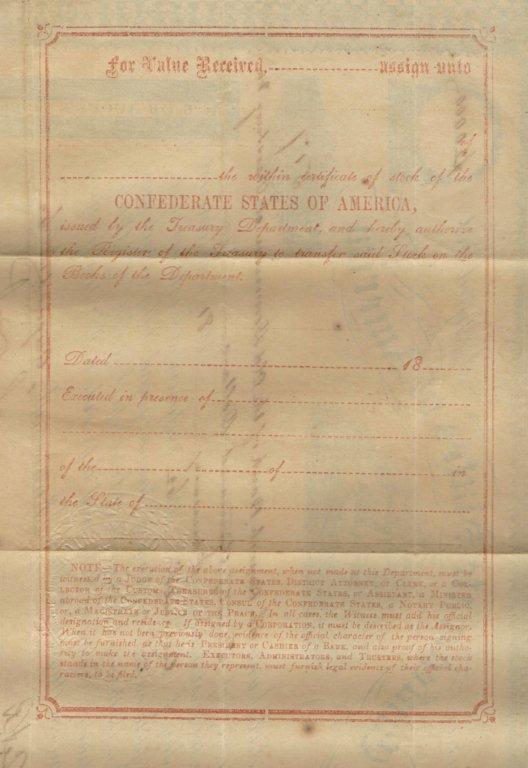 For Value Received, assign unto
of
the within certificate of stock of the
CONFEDERATE STATES OF AMERICA,
issued by the Treasury Department, and hereby authorize
the Register of the Treasury to transfer said Stock on the
Books of the Department.
Dated 18
Executed in presence of
of the of in
the State of
NOTE—The execution of the above assignment, when not made at this Department, must be
witnessed by a JUDGE OF THE CONFEDERATE STATES, DISTRICT ATTORNEY, OR CLERK, or a COL-
LECTOR OF THE CUSTOMS, TREASURER OF THE CONFEDERATE STATES, or ASSISTANT, a MINISTER
abroad OF THE CONFEDERATE STATES, CONSUL OF THE CONFEDERATE STATES, a NOTARY PUBLIC,
or, a MAGISTRATE or JUSTICE OF THE PEACE. In all cases, the Witness must add his official
designation and residence. If assigned by a CORPORATION, it must be described as the Assignor.
When it has not been previously done, evidence of the official character of the person signing
must be furnished, as that he is PRESIDENT or CASHIER of a BANK, and also proof of his autho-
rity to make the assignment. EXECUTORS, ADMINISTRATORS, and TRUSTEES, where the stock
stands in the name of the person they represent, must furnish legal evidence of their official cha-
racters, to be filed.